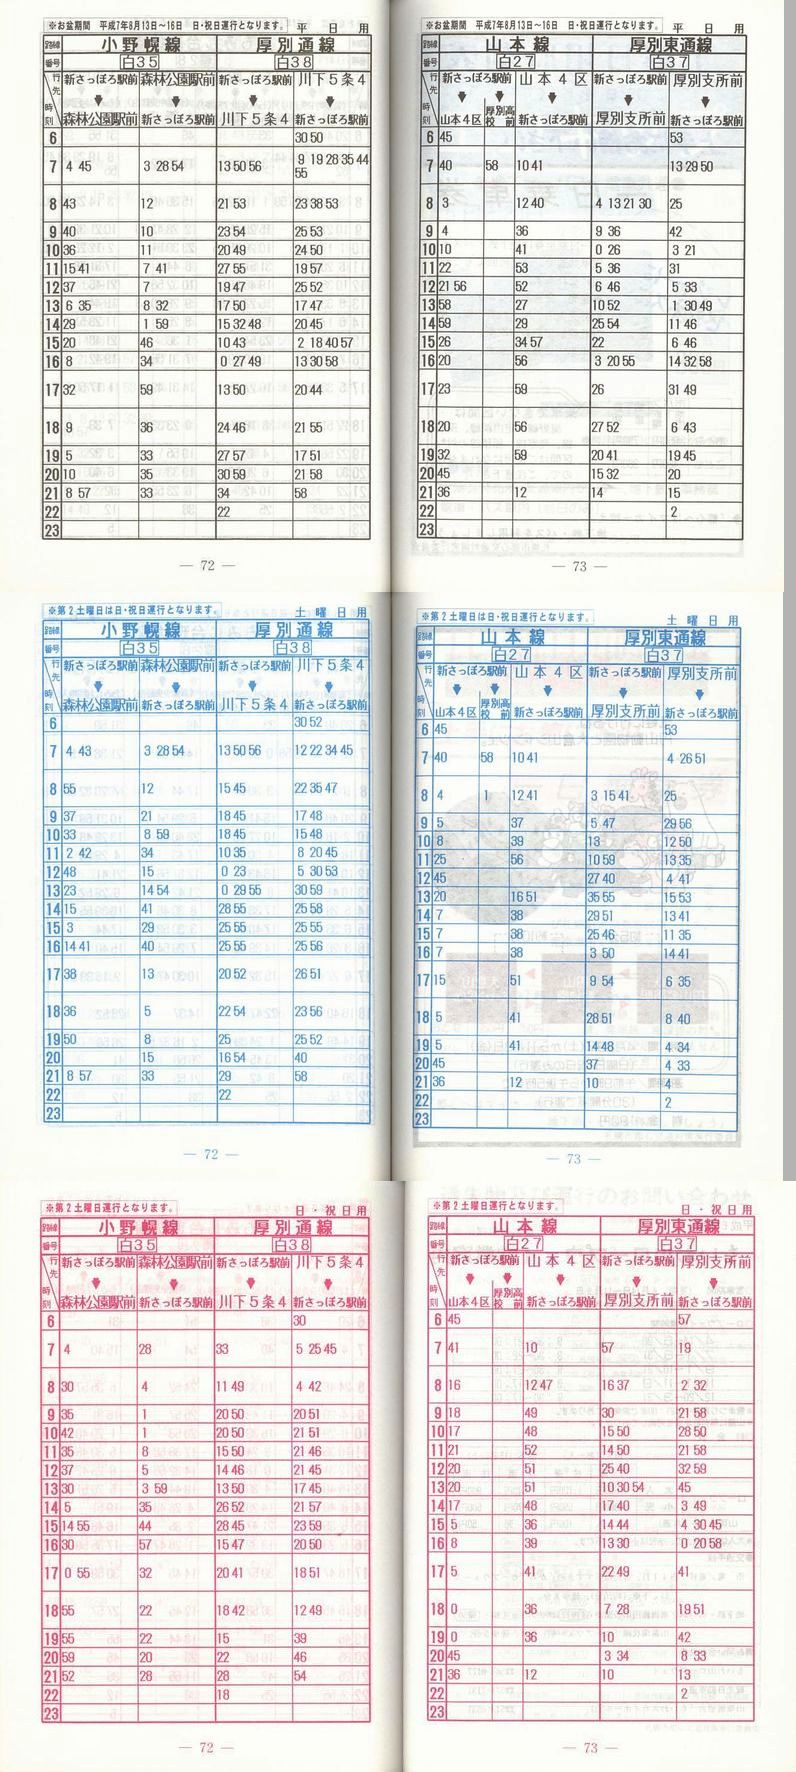 ※お盆期間 平成7年8月13日～16日 日・祝日運行となります。 平日用
路線 小野幌線 厚別通線
番号 白35 白38
行先 新さっぽろ駅前 森林公園駅前 新さっぽろ駅前 川下5条4
時刻 森林公園駅前 新さっぽろ駅前 川下5条4 新さっぽろ駅前
6 30 50
7 4 45 3 28 54 13 50 56 9 19 28 35 44
55
8 43 12 21 53 23 38 53
9 40 10 23 54 25 53
10 36 11 20 49 24 50
11 15 41 7 41 27 55 19 57
12 37 7 19 47 25 52
13 6 35 8 32 17 50 17 47
14 29 1 59 15 32 48 20 45
15 20 46 10 43 2 18 40 57
16 8 34 0 27 49 13 30 58
17 32 59 13 50 20 44
18 9 36 24 46 21 55
19 5 33 27 57 17 51
20 10 35 30 59 21 58
21 8 57 33 34 58
22 22
23
— 72 —
※お盆期間 平成7年8月13日～16日 日・祝日運行となります。 平日用
路線 山本線 厚別東通線
番号 白27 白37
行先 新さっぽろ駅前 山本4区 新さっぽろ駅前 厚別支所前
時刻 山本4区 厚別高校前 新さっぽろ駅前 厚別支所前 新さっぽろ駅前
6 45 53
7 40 58 10 41 13 29 50
8 3 12 40 4 13 21 30 25
9 4 36 9 36 42
10 10 41 0 26 3 21
11 22 53 5 36 31
12 21 56 52 6 46 5 33
13 58 27 10 52 1 30 49
14 59 29 25 54 11 46
15 26 34 57 22 6 46
16 20 56 3 20 55 14 32 58
17 23 59 26 31 49
18 20 56 27 52 6 43
19 32 59 20 41 19 45
20 45 15 32 20
21 36 12 14 15
22 2
23
— 73 —
※第2土曜日は日・祝日運行となります。 土曜日用
路線 小野幌線 厚別通線
番号 白35 白38
行先 新さっぽろ駅前 森林公園駅前 新さっぽろ駅前 川下5条4
時刻 森林公園駅前 新さっぽろ駅前 川下5条4 新さっぽろ駅前
6 30 52
7 4 43 3 28 54 13 50 56 12 22 34 45
8 55 12 15 45 22 35 47
9 37 21 18 45 17 48
10 33 8 59 18 45 15 48
11 2 42 34 10 35 8 20 45
12 48 15 0 23 5 30 53
13 23 14 54 0 29 55 30 59
14 15 41 28 55 25 58
15 3 29 25 55 25 55
16 14 41 40 25 55 25 56
17 38 13 20 52 26 51
18 36 5 22 54 23 56
19 50 8 25 25 52
20 15 16 54 40
21 8 57 33 29 58
22 22
23
— 72 —
※第2土曜日は日・祝日運行となります。 土曜日用
路線 山本線 厚別東通線
番号 白27 白37
行先 新さっぽろ駅前 山本4区 新さっぽろ駅前 厚別支所前
時刻 山本4区 厚別高校前 新さっぽろ駅前 厚別支所前 新さっぽろ駅前
6 45 53
7 40 58 10 41 4 26 51
8 4 1 12 41 3 15 41 25
9 5 37 5 47 29 56
10 8 39 13 12 50
11 25 56 10 59 13 35
12 45 27 40 4 41
13 20 16 51 35 55 15 53
14 7 38 29 51 13 41
15 7 38 25 46 11 35
16 7 38 3 50 14 41
17 15 51 9 54 6 35
18 5 41 28 51 8 40
19 5 41 14 48 4 34
20 45 37 4 33
21 36 12 10 4
22 2
23
— 73 —
※第2土曜日運行となります。 日・祝日用
路線 小野幌線 厚別通線
番号 白35 白38
行先 新さっぽろ駅前 森林公園駅前 新さっぽろ駅前 川下5条4
時刻 森林公園駅前 新さっぽろ駅前 川下5条4 新さっぽろ駅前
6 30
7 4 28 33 5 25 45
8 30 4 11 49 4 42
9 35 1 20 50 20 51
10 42 1 20 50 21 51
11 35 8 15 50 21 46
12 37 5 14 46 21 45
13 30 3 59 13 50 17 45
14 5 35 26 52 21 57
15 14 55 44 28 45 23 59
16 30 57 15 47 20 50
17 0 55 32 20 41 18 51
18 55 22 18 42 12 49
19 55 22 15 39
20 59 28 22 46
21 52 28 28 54
22 18
23
— 72 —
※第2土曜日運行となります。 日・祝日用
路線 山本線 厚別東通線
番号 白27 白37
行先 新さっぽろ駅前 山本4区 新さっぽろ駅前 厚別支所前
時刻 山本4区 厚別高校前 新さっぽろ駅前 厚別支所前 新さっぽろ駅前
6 45 57
7 41 10 57 19
8 16 12 47 16 37 2 32
9 18 49 30 21 58
10 17 48 15 50 28 50
11 21 52 14 50 21 58
12 20 51 25 40 32 59
13 20 51 10 30 54 45
14 17 48 17 40 3 49
15 5 36 14 44 4 30 45
16 8 39 13 30 0 20 58
17 5 41 22 49 41
18 0 36 7 28 19 51
19 0 36 10 42
20 45 3 34 8 33
21 36 12 10 13
22 2
23
— 73 —